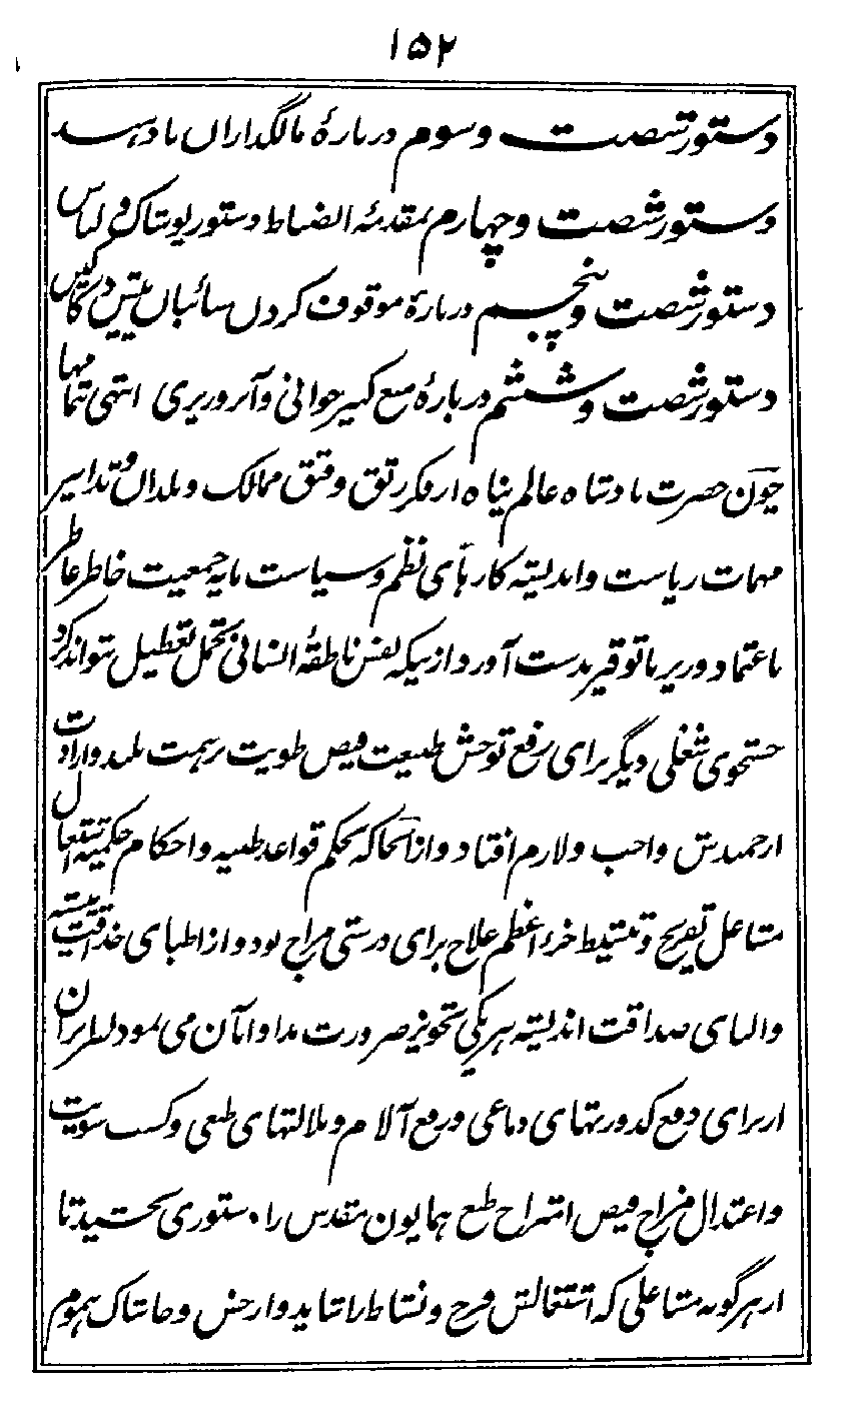 ۱۵۲
دستور شصت و سوم دربارهٔ مالگذاران بادهند
دستور شصت و چهارم بمقدمهٔ انضباط دستور پوشاک و لباس
دستور شصت و پنجم دربارهٔ موقوف کردن سائبان پیش در
دستور شصت و ششم دربارهٔ منع کمیز جوانی و آبروریزی انتهی تمامها
چون حضرت بادشاه عالم پناه از فکر رتق و فتق ممالک و بلدان و تدابیر
مهمات ریاست و اندیشه کارهای نظم و سیاست مایه جمعیت خاطر عاطر
باعتماد وزیر باتوقیر بدست آورد ازبیکه نفس ناطقهٔ انسانی تحمل تعطیل نتواند کرد
جستجوی شغلی دیگر برای رفع توحش طبیعت فیض طویت بر همت بلند و ارادت
ارجمندش واجب و لازم افتاد و از آنجا که بحکم قواعد طبیه و احکام حکمیه اشتغال
مشاغل تفریح و تنشیط جزء اعظم علاج برای درستی مزاج بود و از اطبای حذاقت پیشه
و البای صداقت اندیشه هر یکی تجویز ضرورت مداوا بآن می نمود بنابران
از برای دفع کدورتهای دماغی و رفع آلام و ملالتهای طبعی و کسب سویت
و اعتدال مزاج فیض امتزاج طبع همایون مقدس را دستوری بخشید تا
از هر گونه مشاغلی که اشتغالش فرح و نشاط را شاید و از خس و خاشاک هموم